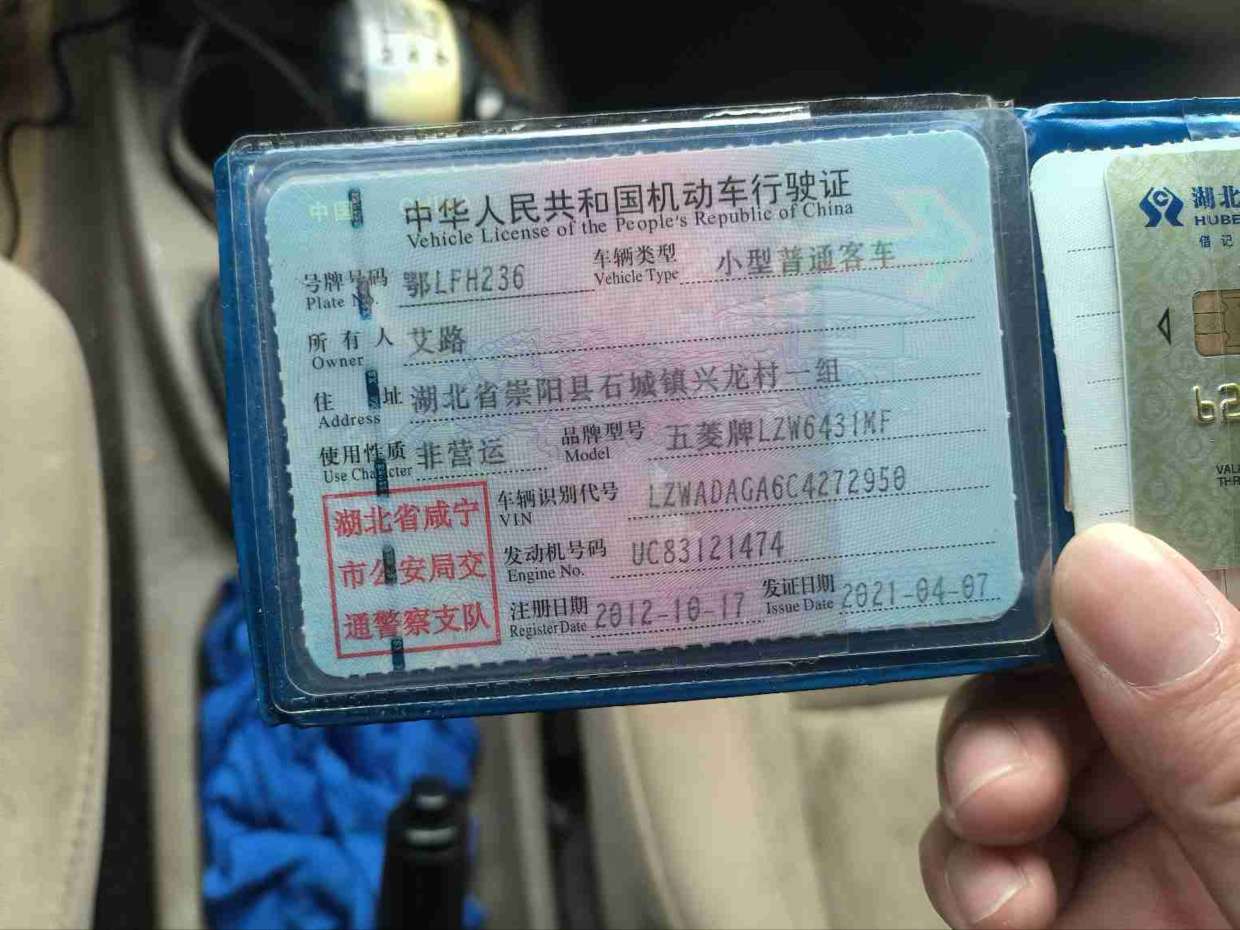 中华人民共和国机动车行驶证
Vehicle License of the People's Republic of China
号牌号码 鄂LFH236 车辆类型 小型普通客车
Plate No. Vehicle Type
所有人 艾路
Owner
住址 湖北省崇阳县石城镇兴龙村一组
Address
使用性质 非营运 品牌型号 五菱牌LZW6431MF
Use Character Model
车辆识别代号 LZWADAGA6C4272950
VIN
发动机号码 UC83121474
Engine No.
注册日期 2012-10-17 发证日期 2021-04-07
Register Date Issue Date
湖北省咸宁
市公安局交
通警察支队
湖北
HUBE
借记
62
VAL
THR